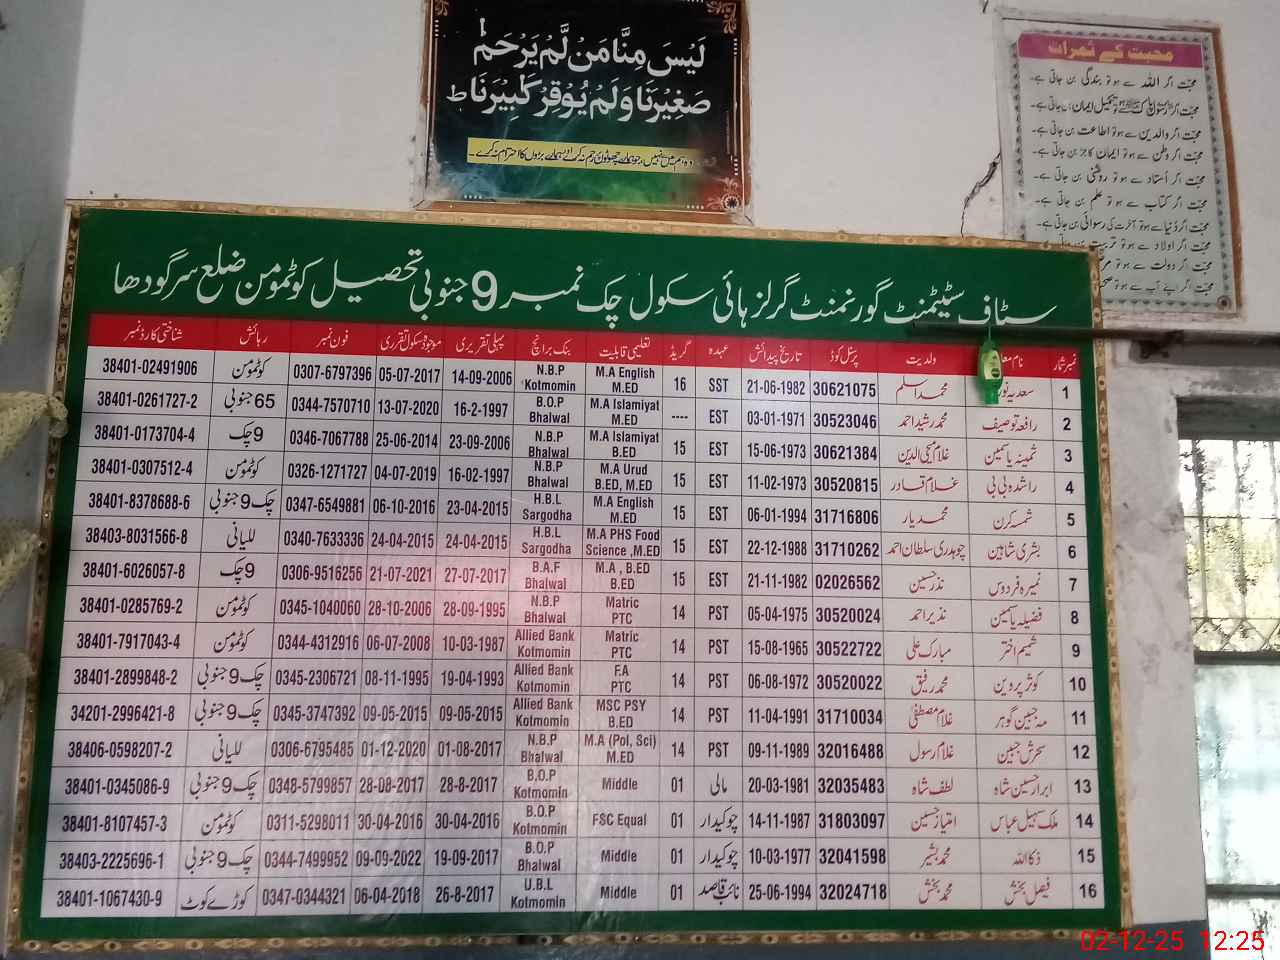 لَيْسَ مِنَّا مَنْ لَّمْ يَرْحَمْ
صَغِيْرَنَا وَلَمْ يُوَقِّرْ كَبِيْرَنَا ط
وہ ہم میں نہیں، جو ہمارے چھوٹوں پر رحم نہ کرے اور ہمارے بڑوں کا احترام نہ کرے۔
محبت کے ثمرات
محبّت اگر اللہ سے ہو تو بندگی بن جاتی ہے۔
محبّت اگر رسول پاک ﷺ سے ہو تو تکمیل ایمان بن جاتی ہے۔
محبّت اگر والدین سے ہو تو اطاعت بن جاتی ہے۔
محبّت اگر وطن سے ہو تو ایمان کا جز بن جاتی ہے۔
محبّت اگر اُستاد سے ہو تو روشنی بن جاتی ہے۔
محبّت اگر کتاب سے ہو تو علم بن جاتی ہے۔
محبّت اگر دُنیا سے ہو تو آخرت کی رسوائی بن جاتی ہے۔
محبّت اگر اولاد سے ہو تو تربیت بن جاتی
محبّت اگر دولت سے ہو تو
محبّت اگر اپنے آپ سے ہو تو
سٹاف سٹیٹمنٹ گورنمنٹ گرلز ہائی سکول چک نمبر 9 جنوبی تحصیل کوٹمومن ضلع سرگودھا
نمبر شمار نام معا ولدیت پرسنل کوڈ تاریخ پیدائش عہدہ گریڈ تعلیمی قابلیت بنک برانچ پہلی تقرری موجودہ سکول تقرری فون نمبر رہائش شناختی کارڈ نمبر
1 سعدیہ نو محمد اسلم 30621075 21-06-1982 SST 16 M.A English M.ED N.B.P Kotmomin 14-09-2006 05-07-2017 0307-6797396 کوٹمومن 38401-02491906
2 رافعہ توصیف محمد رشید احمد 30523046 03-01-1971 EST ---- M.A Islamiyat M.ED B.O.P Bhalwal 16-2-1997 13-07-2020 0344-7570710 65 جنوبی 38401-0261727-2
3 ثمینہ یاسمین غلام محی الدین 30621384 15-06-1973 EST 15 M.A Islamiyat B.ED N.B.P Bhalwal 23-09-2006 25-06-2014 0346-7067788 9 چک 38401-0173704-4
4 راشدہ بی بی غلام قادر 30520815 11-02-1973 EST 15 M.A Urud B.ED, M.ED N.B.P Bhalwal 16-02-1997 04-07-2019 0326-1271727 کوٹمومن 38401-0307512-4
5 شمسہ کرن محمد یار 31716806 06-01-1994 EST 15 M.A English M.ED H.B.L Sargodha 23-04-2015 06-10-2016 0347-6549881 چک 9 جنوبی 38401-8378688-6
6 بشریٰ شاہین چوہدری سلطان احمد 31710262 22-12-1988 EST 15 M.A PHS Food Science ,M.ED H.B.L Sargodha 24-04-2015 24-04-2015 0340-7633336 للیانی 38403-8031566-8
7 نمیرہ فردوس نذر حسین 02026562 21-11-1982 EST 15 M.A , B.ED B.ED B.A.F Bhalwal 27-07-2017 21-07-2021 0306-9516256 9 چک 38401-6026057-8
8 فضیلہ یاسمین نذیر احمد 30520024 05-04-1975 PST 14 Matric PTC N.B.P Bhalwal 28-09-1995 28-10-2006 0345-1040060 کوٹمومن 38401-0285769-2
9 شمیم اختر مبارک علی 30522722 15-08-1965 PST 14 Matric PTC Allied Bank Kotmomin 10-03-1987 06-07-2008 0344-4312916 کوٹمومن 38401-7917043-4
10 کوثر پروین محمد رفیق 30520022 06-08-1972 PST 14 F.A PTC Allied Bank Kotmomin 19-04-1993 08-11-1995 0345-2306721 چک 9 جنوبی 38401-2899848-2
11 مہ جبین گوہر غلام مصطفیٰ 31710034 11-04-1991 PST 14 MSC PSY B.ED Allied Bank Kotmomin 09-05-2015 09-05-2015 0345-3747392 چک 9 جنوبی 34201-2996421-8
12 سحرش جبین غلام رسول 32016488 09-11-1989 PST 14 M.A (Pol, Sci) M.ED N.B.P Bhalwal 01-08-2017 01-12-2020 0306-6795485 للیانی 38406-0598207-2
13 ابرار حسین شاہ لطف شاہ 32035483 20-03-1981 مالی 01 Middle B.O.P Kotmomin 28-8-2017 28-08-2017 0348-5799857 چک 9 جنوبی 38401-0345086-9
14 ملک سہیل عباس امتیاز حسین 31803097 14-11-1987 چوکیدار 01 FSC Equal B.O.P Kotmomin 30-04-2016 30-04-2016 0311-5298011 کوٹمومن 38401-8107457-3
15 ذکااللہ محمد بشیر 32041598 10-03-1977 چوکیدار 01 Middle B.O.P Bhalwal 19-09-2017 09-09-2022 0344-7499952 چک 9 جنوبی 38403-2225696-1
16 فیصل بخش محمد بخش 32024718 25-06-1994 نائب قاصد 01 Middle U.B.L Kotmomin 26-8-2017 06-04-2018 0347-0344321 کوڑے کوٹ 38401-1067430-9
02-12-25 12:25